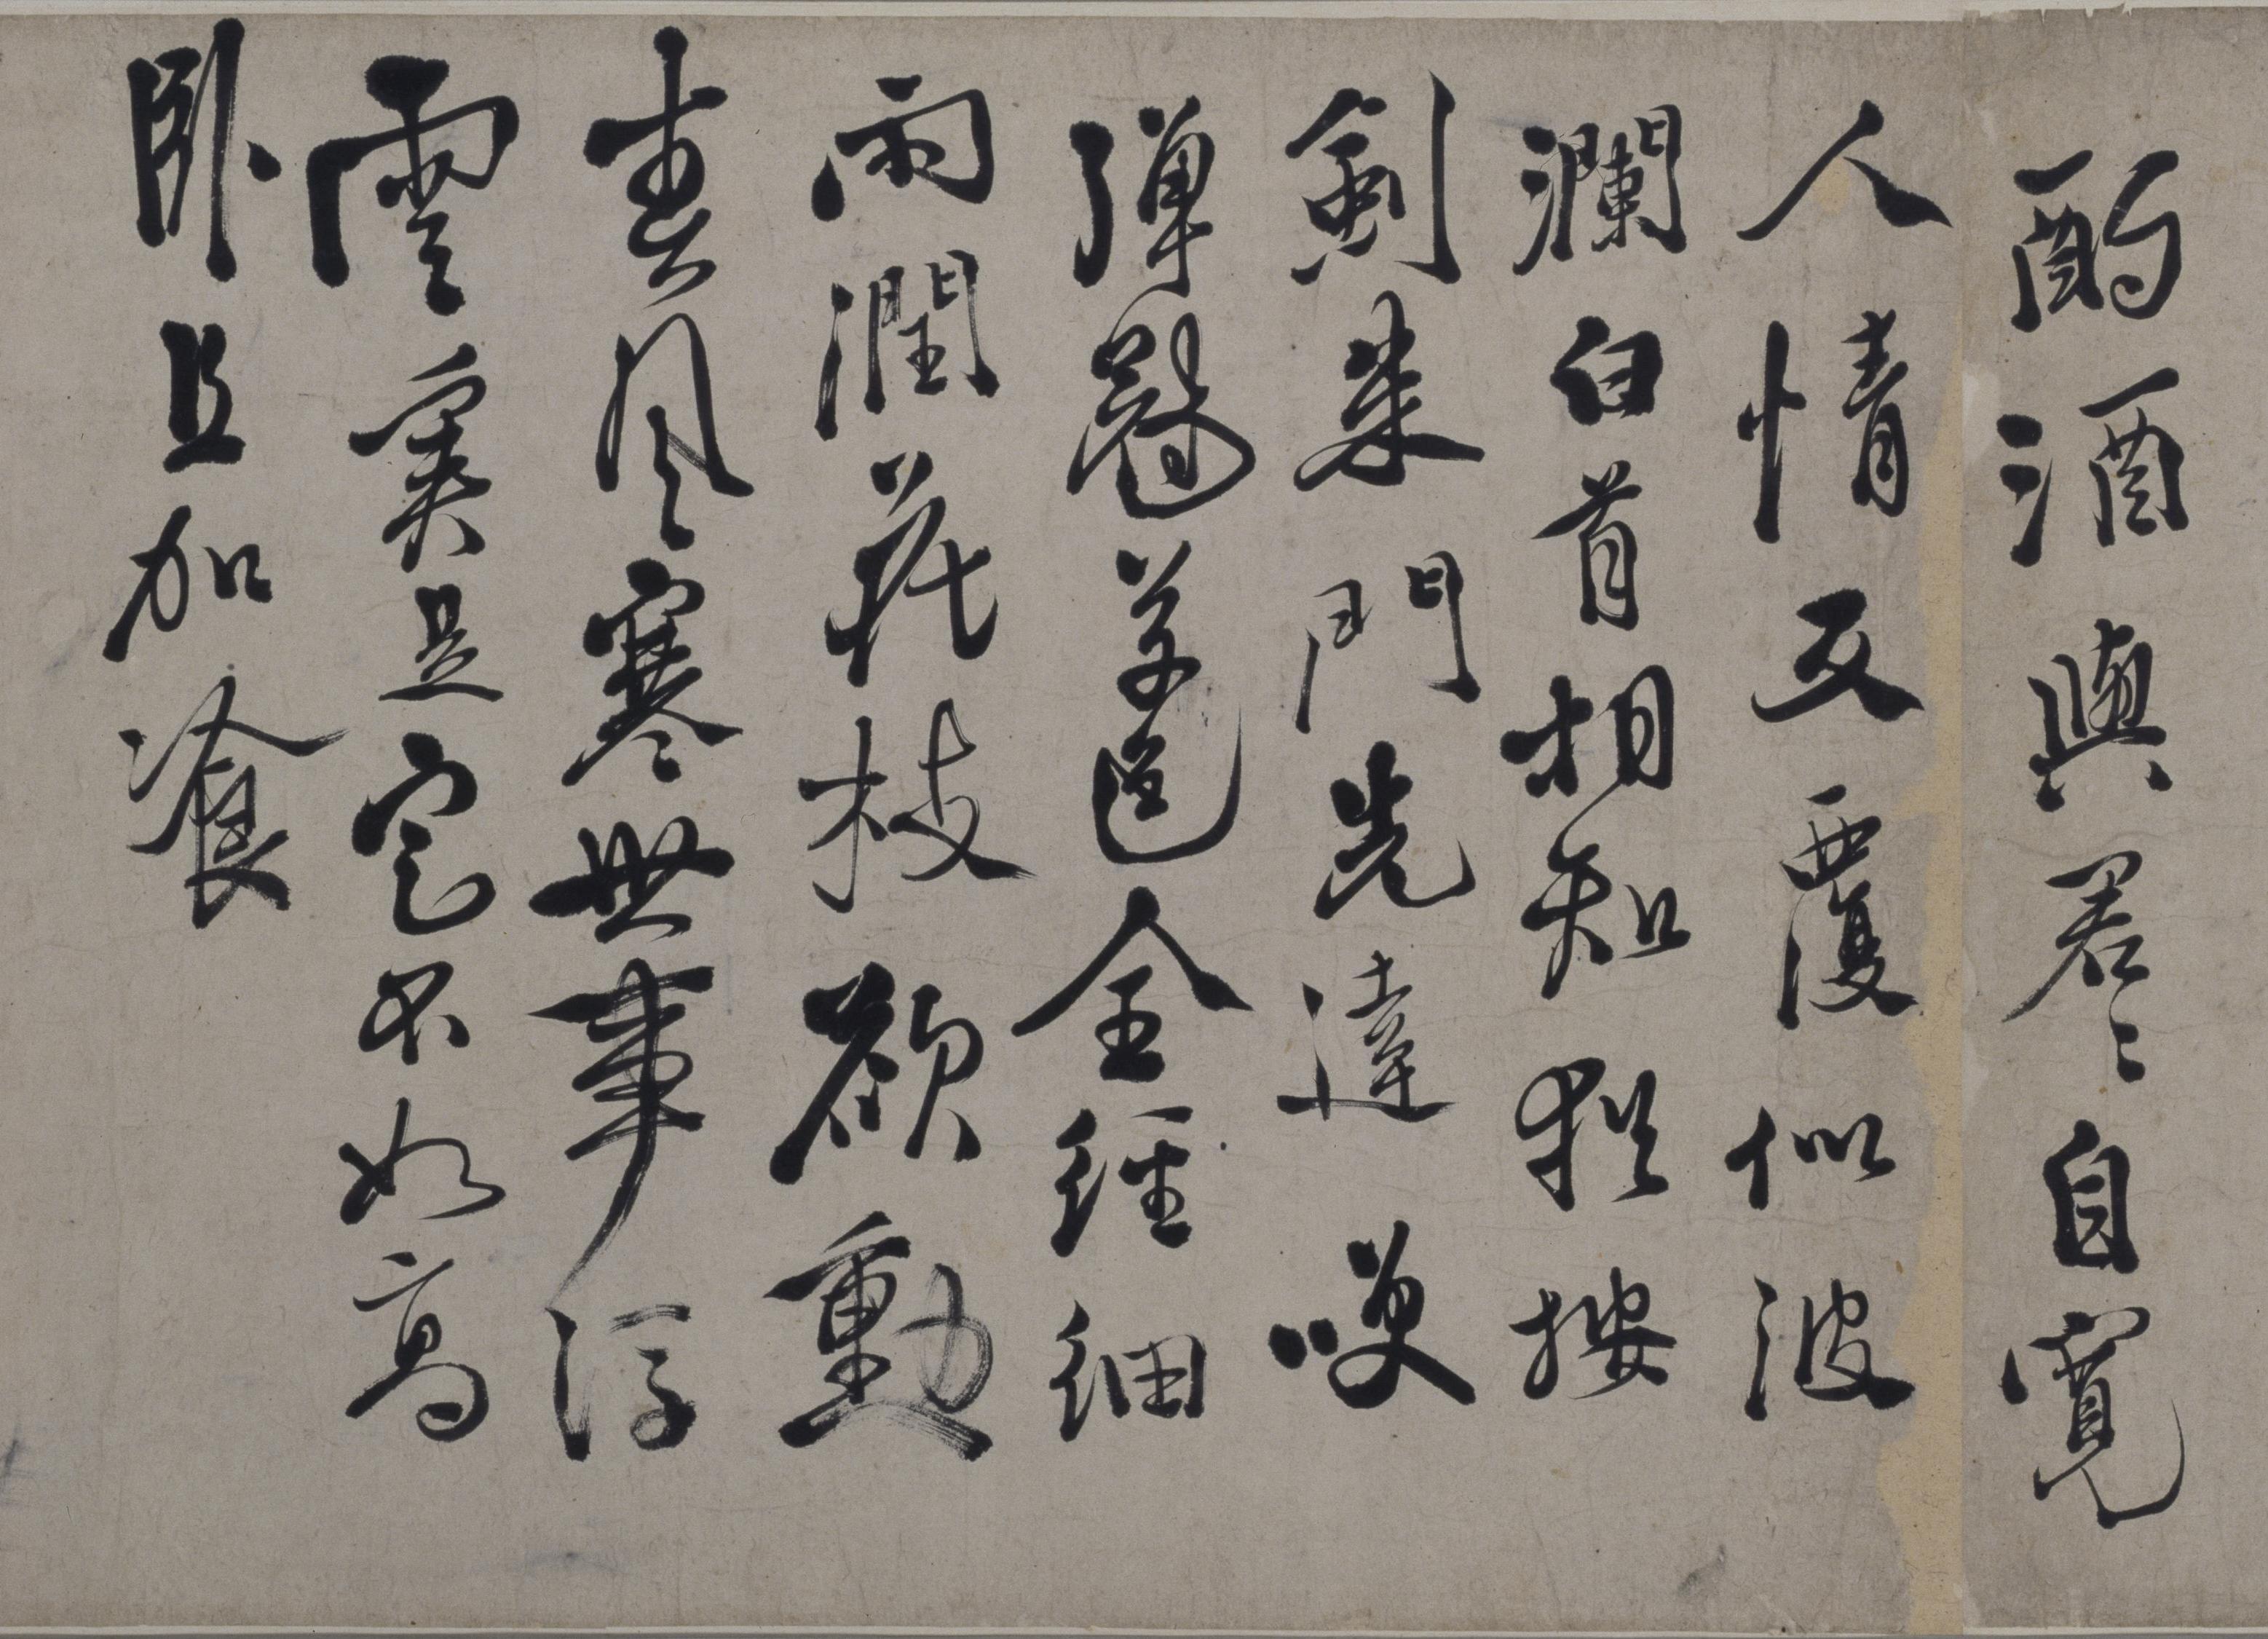 酌酒與君〻自寬
人情反覆似波
瀾白首相知猶按
劍朱門先達咲
彈冠草色全經細
雨潤花枝欲動
春風寒世事浮
雲奚是定不如高
臥且加飡